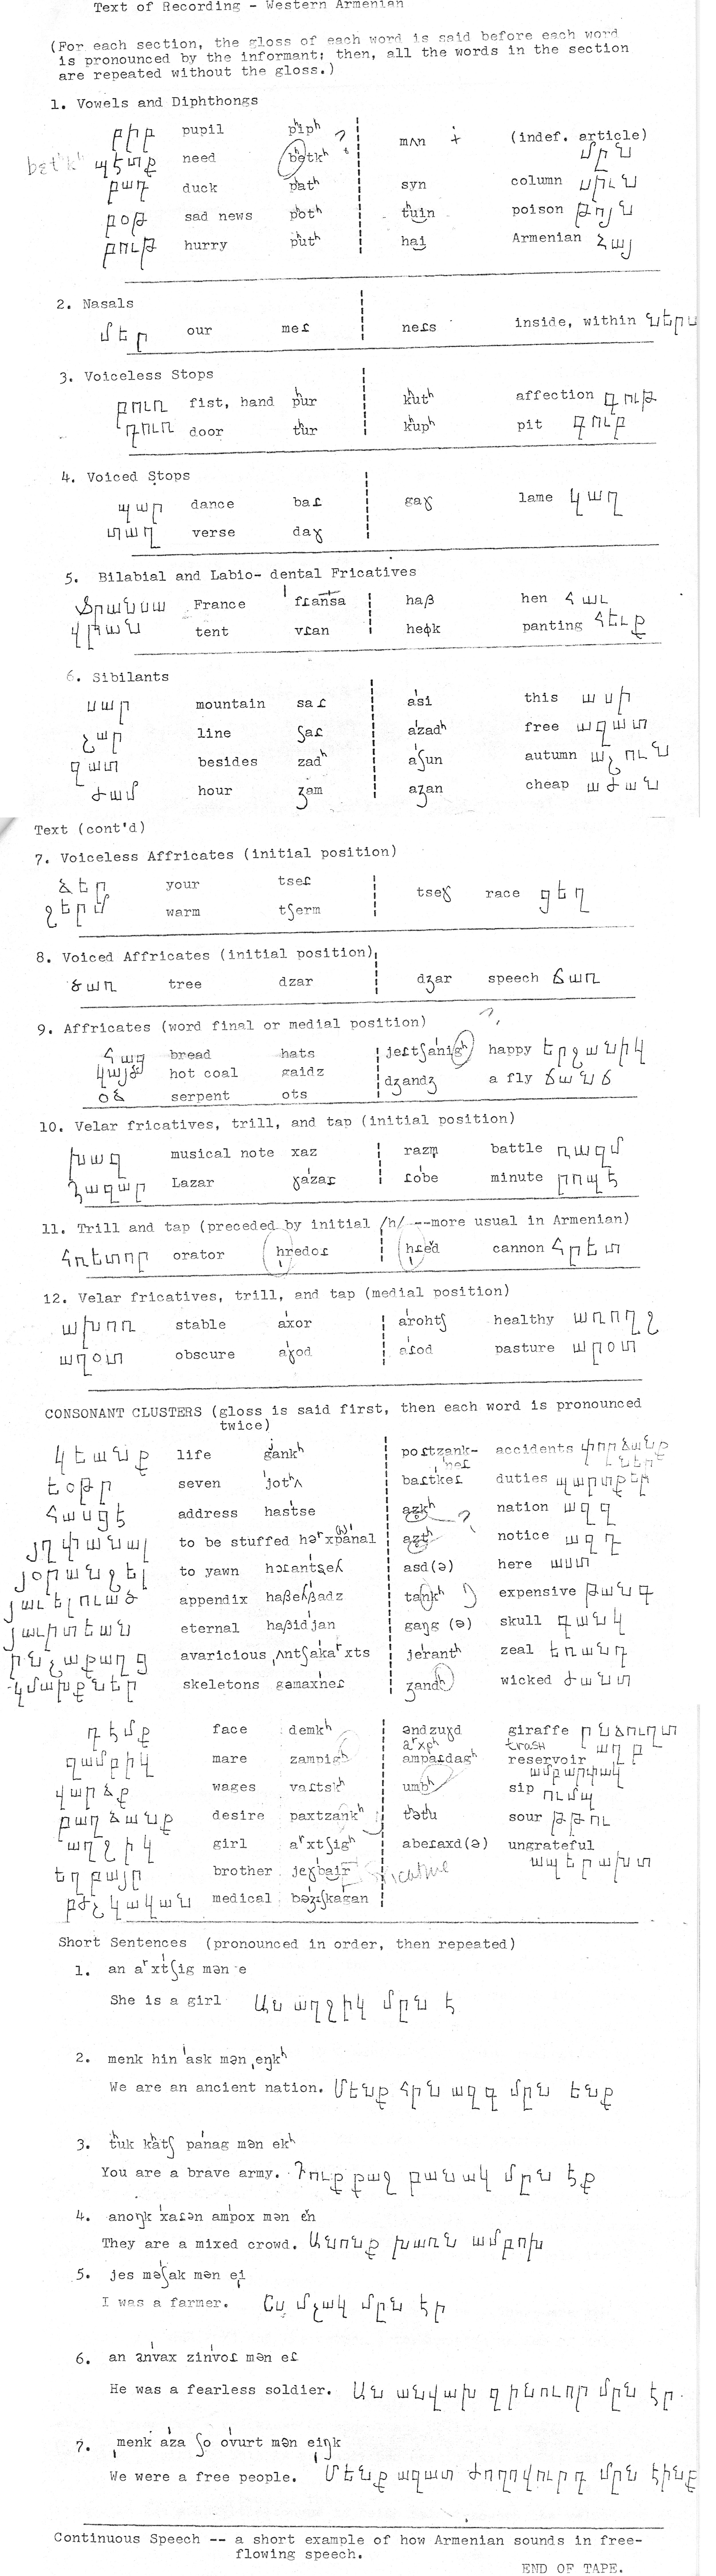 Text of Recording - Western Armenian
(For each section, the gloss of each word is said before each word
is pronounced by the informant; then, all the words in the section
are repeated without the gloss.)
1. Vowels and Diphthongs
բիբ pupil pʰipʰ mʌn (indef. article) մըն
պէտք need betkʰ
բադ duck pʰatʰ syn column սիւն
բօթ sad news pʰotʰ tʰuin poison թոյն
բութ hurry pʰutʰ hai Armenian Հայ
2. Nasals
մեր our meɾ neɾs inside, within ներս
3. Voiceless Stops
բուռ fist, hand pʰur kʰutʰ affection գութ
դուռ door tʰur kʰupʰ pit գուբ
4. Voiced Stops
պար dance baɾ gaɣ lame կաղ
տաղ verse daɣ
5. Bilabial and Labio- dental Fricatives
Ֆրանսա France fɾansa haβ hen հաւ
վրան tent vɾan heɸk panting հեւք
6. Sibilants
սար mountain saɾ asi this ասի
շար line ʃaɾ azadʰ free ազատ
զատ besides zadʰ aʃun autumn աշուն
ժամ hour ʒam aʒan cheap աժան
Text (cont'd)
7. Voiceless Affricates (initial position)
ձեր your tseɾ tseɣ race ցեղ
ջերմ warm tʃerm
8. Voiced Affricates (initial position)
ծառ tree dzar dʒar speech ճառ
9. Affricates (word final or medial position)
հաց bread hats jeɾtʃanigʰ happy երջանիկ
կայծ hot coal gaidz dʒandʒ a fly ճանճ
օձ serpent ots
10. Velar fricatives, trill, and tap (initial position)
խազ musical note xaz razm battle ռազմ
Ղազար Lazar ɣazaɾ ɾobe minute րոպէ
11. Trill and tap (preceded by initial /h/ --more usual in Armenian)
հռետոր orator hredoɾ hɾed cannon հրետ
12. Velar fricatives, trill, and tap (medial position)
ախոռ stable axor arohtʃ healthy առողջ
աղօտ obscure aɣod aɾod pasture արօտ
CONSONANT CLUSTERS (gloss is said first, then each word is pronounced
twice)
կեանք life gankʰ poɾtzank- accidents փորձանք
եօթը seven jotʰʌ baɾtkeɾ duties պարտքեր
հասցէ address hastse azkʰ nation ազգ
յղփանալ to be stuffed aztʰ notice ազդ
յօրանջել to yawn asd(ə) here աստ
յաւելուած appendix tankʰ expensive թանգ
յաւիտեան eternal haβidjan gaŋg (ə) skull գանկ
ընչաքաղց avaricious jerantʰ zeal եռանդ
կմախքներ skeletons gəmaxneɾ ʒandʰ wicked ժանտ
դէմք face demkʰ əndzuɣd giraffe ընձուղտ
trash աղբ
զամբիկ mare zampigʰ ampaɾdagʰ reservoir
վարձք wages vaɾtskʰ umbʰ sip ումպ
բաղձանք desire paxtzankʰ tʰətʰu sour թթու
աղջիկ girl aʳxtʃigʰ abeɾaxd(ə) ungrateful
եղբայր brother jeɣbair ապերախտ
բժշկական medical bəʒɪʃkagan
Short Sentences (pronounced in order, then repeated)
1. an aʳxtʃig mən e
She is a girl Ան աղջիկ մըն է
2. menk hin ask mən ˌeŋkʰ
We are an ancient nation. Մենք հին ազգ մըն ենք
3. tʰuk kʰatʃ panag mən ekʰ
You are a brave army. Դուք քաջ բանակ մըն էք
4. anoŋk xaɾən ampox mən en
They are a mixed crowd. Անոնք խառն ամբոխ
5. jes məʃak mən ei
I was a farmer. Ես մշակ մըն էի
6. an anvax zinvoɾ mən eɾ
He was a fearless soldier. Ան անվախ զինուոր մըն էր.
7. menk aza ʃo ovurt mən eiŋk
We were a free people. Մենք ազատ ժողովուրդ մըն էինք
Continuous Speech -- a short example of how Armenian sounds in free-
flowing speech.
END OF TAPE.